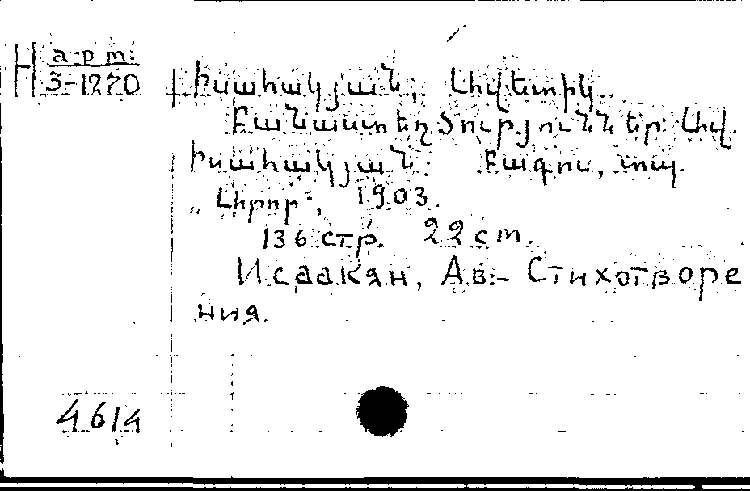 H арт.
3-1220
Իսահակյան, Ավետիկ.
Բանաստեղծություններ Ավ.
Իսահակյան. Բագու, տպ.
„Արոր“, 1903.
136 стр. 22 ст.
Исаакян, Ав.- Стихотворе
ния.
4614